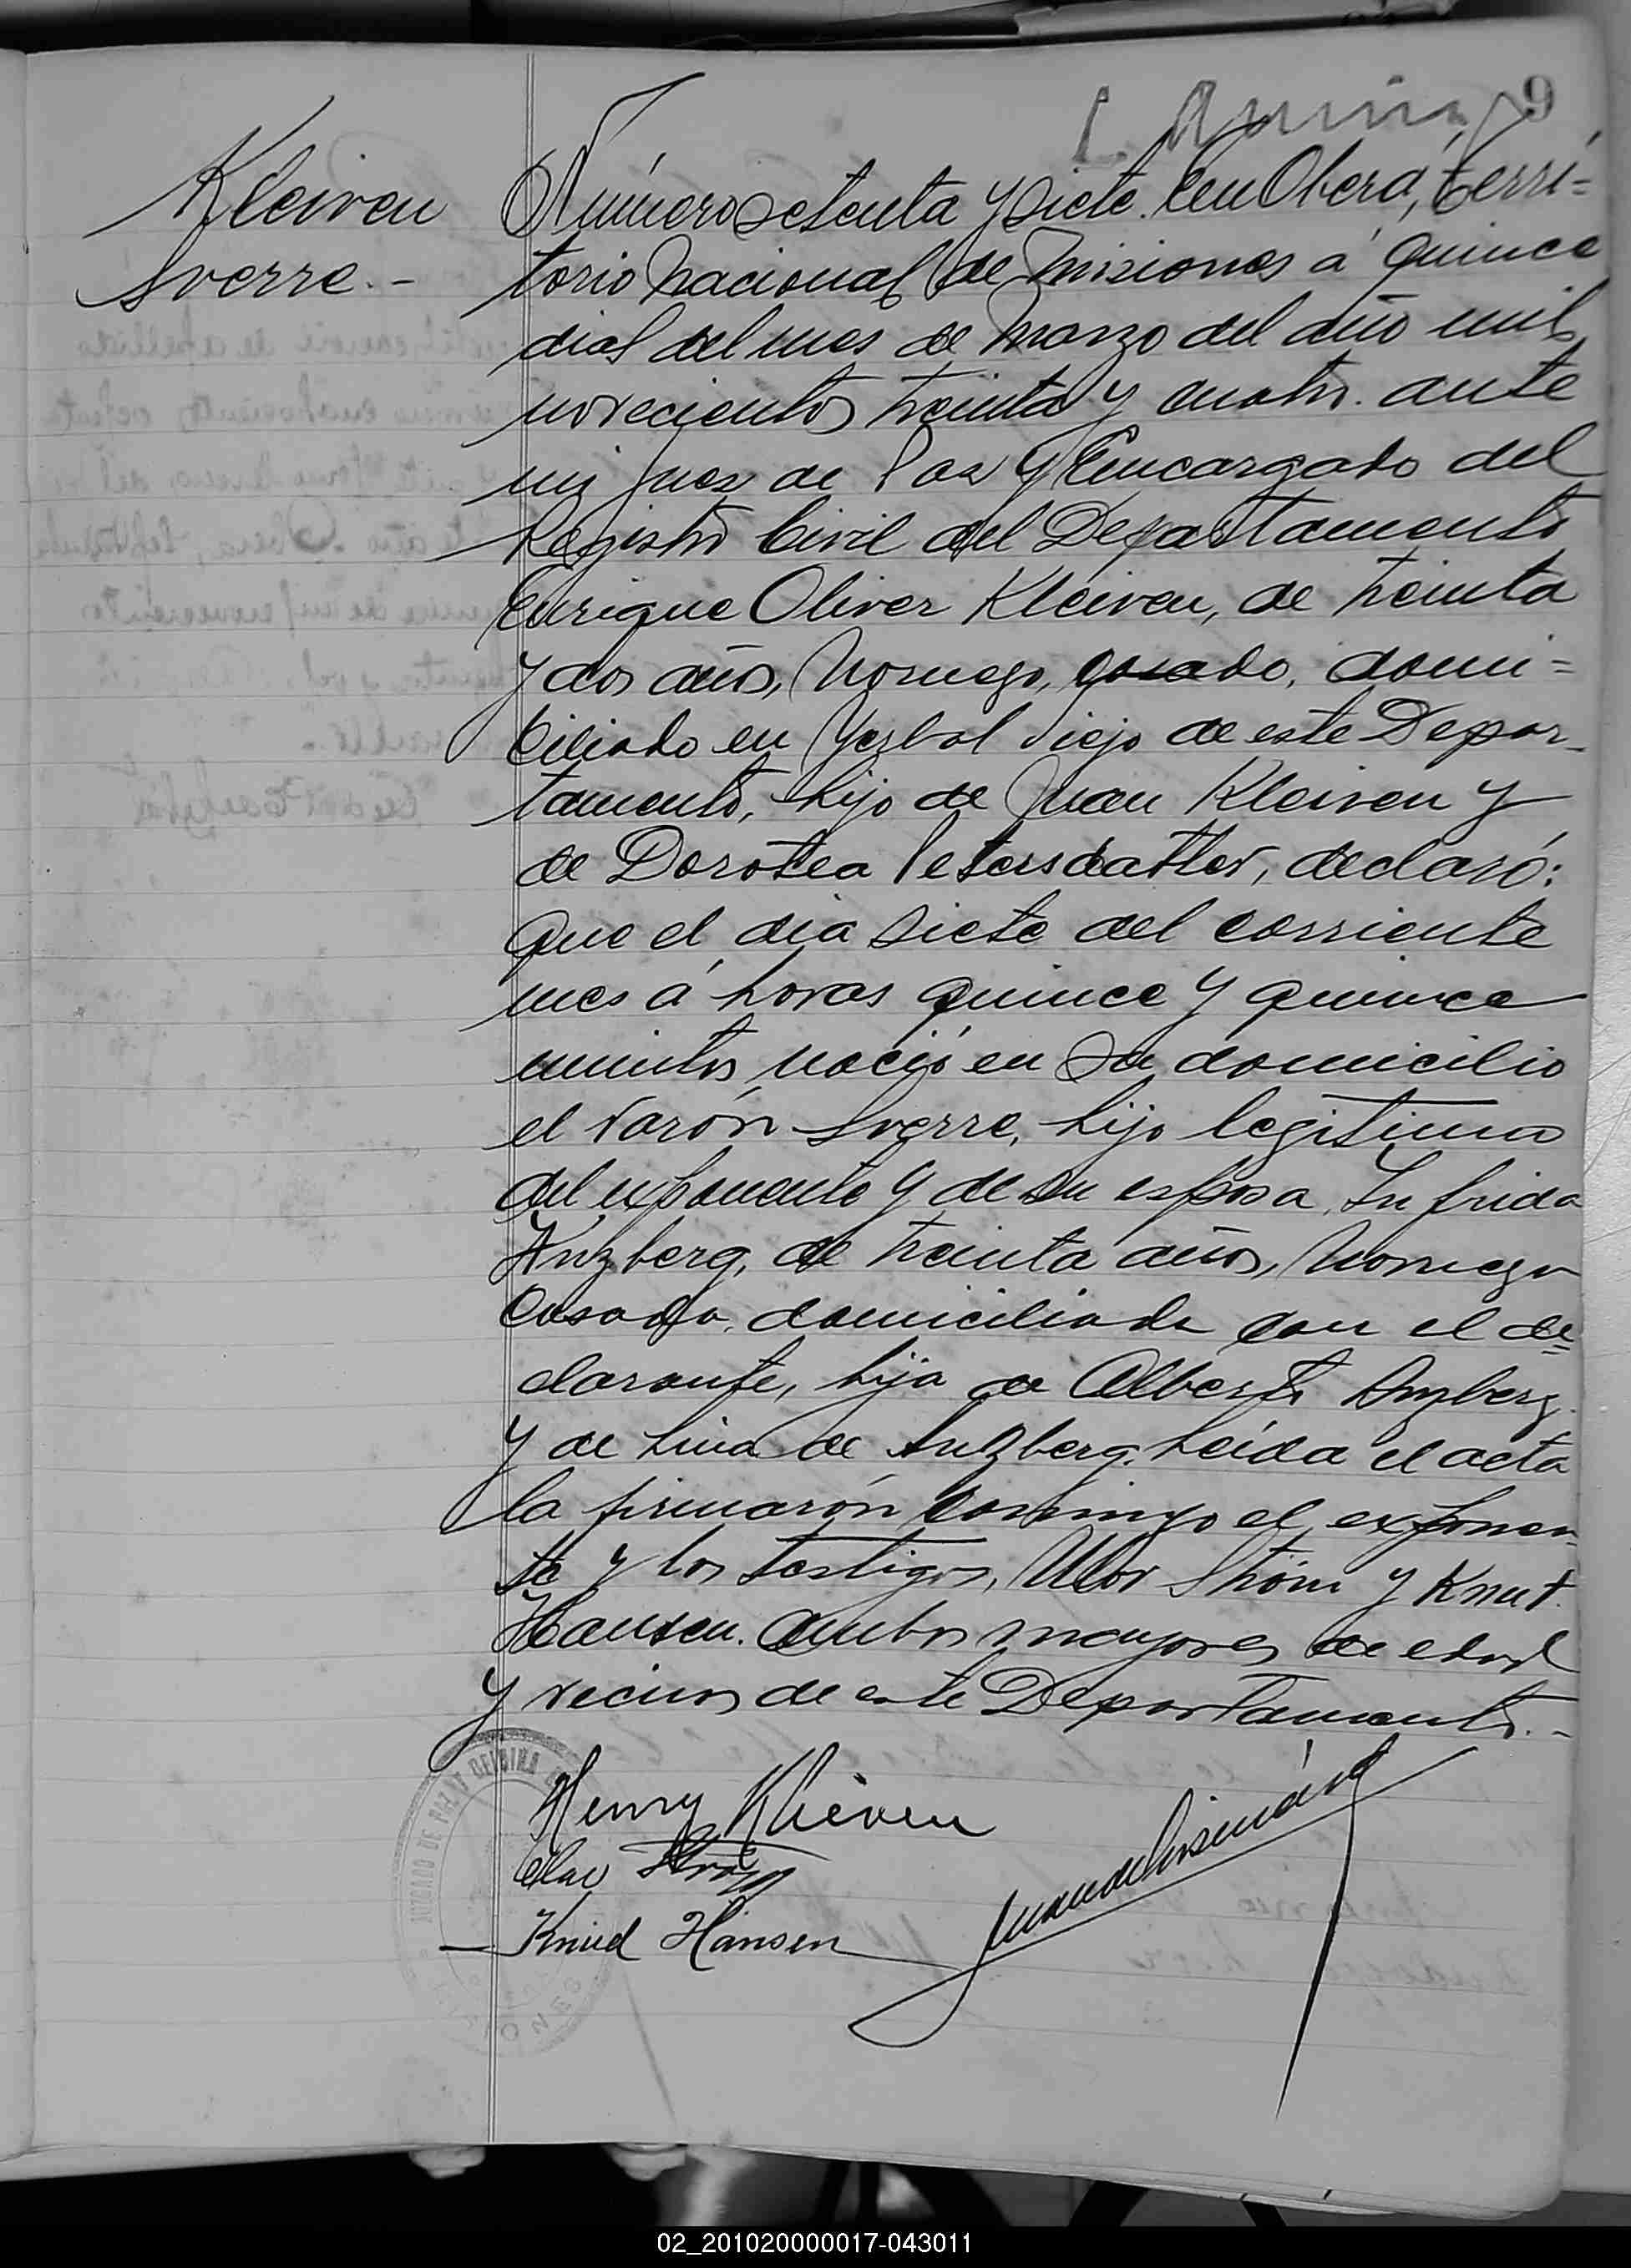 9
Kleiven
Sverre.-
Número setenta y siete. En Oberá, Terri=
torio Nacional de Misiones a quince
dias del mes de Marzo del año mil
novecientos treinta y cuatro. ante
mi Juez de Paz y Encargado del
Registro Civil del Departamento
Enrique Oliver Kleiven, de treinta
y dos años, Noruego, casado, domi=
ciliado en Yerbal Viejo de este Depar-
tamento, hijo de Juan Kleiven y
de Dorotea Petersdatter, declaró:
Que el dia siete del corriente
mes á horas quince y quince
minutos, nació en su domicilio
el varón Sverre, hijo legitimo
del exponente y de su esposa, Infrida
Anzberg, de treinta años, Noruega
casada, domiciliada con el de=
clarante, hija de Alberto Anzberg
y de Lina de Anzberg. Leida el acta
la firmarón conmigo el exponen-
te y los testigos, Ström y Knut
Hansen. ambos mayores de edad
y vecinos de este Departamento.-
Henry Kleiven
Olav Strøm
Knud Hansen
JUZGADO DE PAZ
02_201020000017-043011